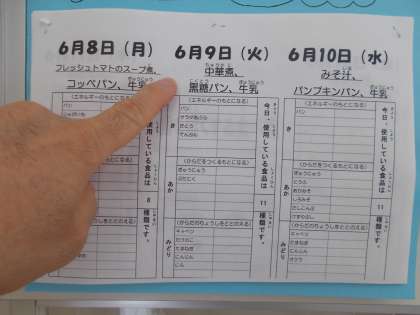 6月8日（月）
フレッシュトマトのスープ煮、
コッペパン、牛乳
(エネルギーのもとになる)
パン
8
種類です。
6月9日（火）
中華煮、
黒糖パン、牛乳
(エネルギーのもとになる)
き
パン
さとう
でんぷん
(からだをつくるもとになる)
あか
ぎゅうにゅう
ぶたにく
(からだのちょうしをととのえる)
みどり
キャベツ
たけのこ
たまねぎ
にんじん
にんにく
今日、使用している食品は
11
種類です。
6月10日（水）
みそ汁、
パンプキンパン、牛乳
(エネルギーのもとになる)
き
パン
(からだをつくるもとになる)
あか
ぎゅうにゅう
とうふ
(からだのちょうしをととのえる)
みどり
キャベツ
たまねぎ
にんじん
今日、使用している食品は
11
種類です。